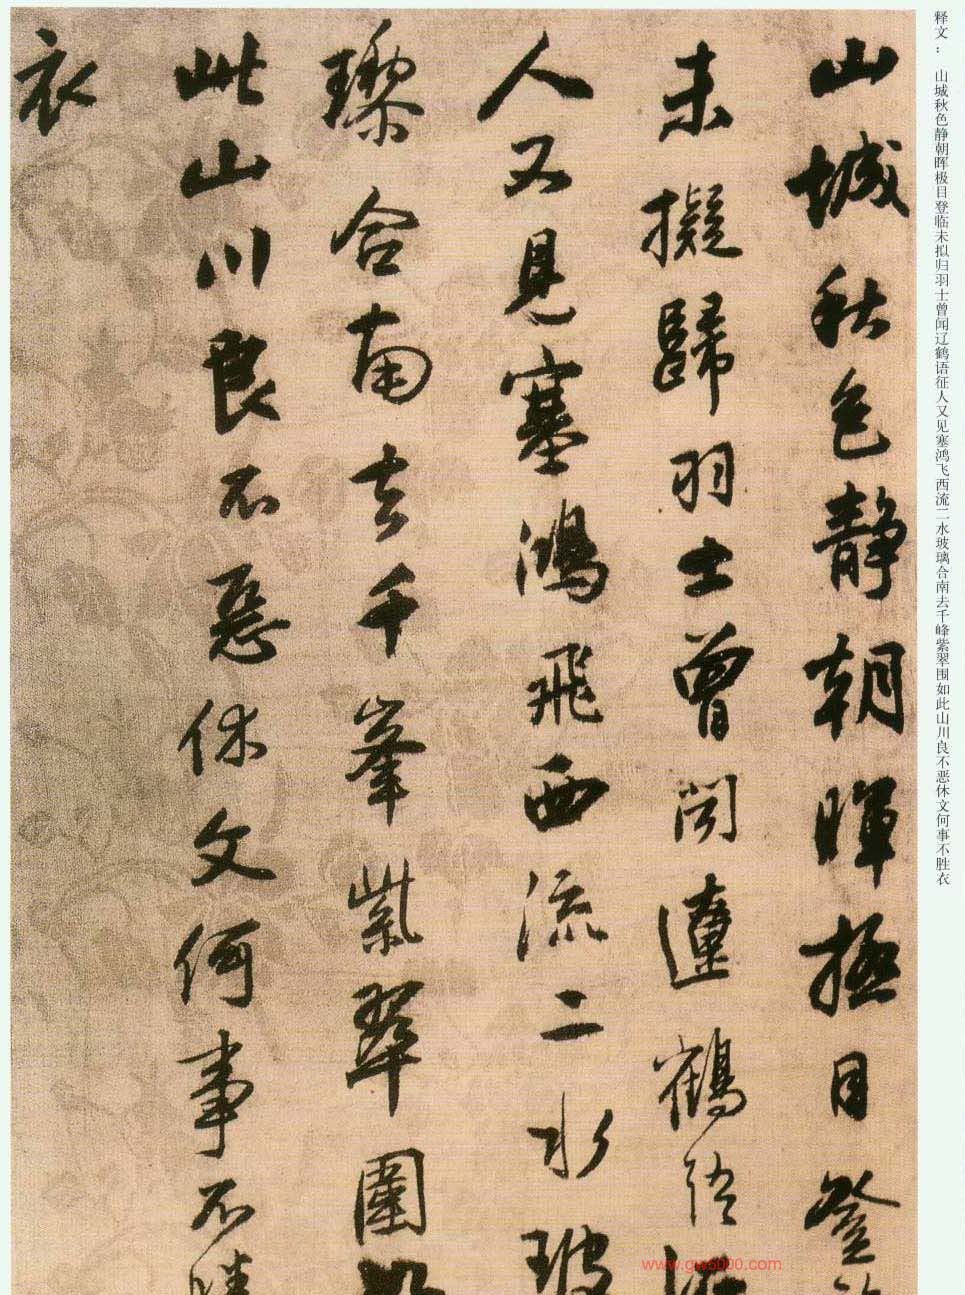 释文：山城秋色静朝晖极目登临未拟归羽士曾闻辽鹤语征人又见塞鸿飞西流二水玻璃合南去千峰紫翠围如此山川良不恶休文何事不胜衣
山城秋色静朝暉極目登
未擬歸羽士曾闻遼鶴語
人又見塞鴻飛西流二水玻
瓈合南去千峯紫翠圍
此山川良不惡休文何事不勝
衣